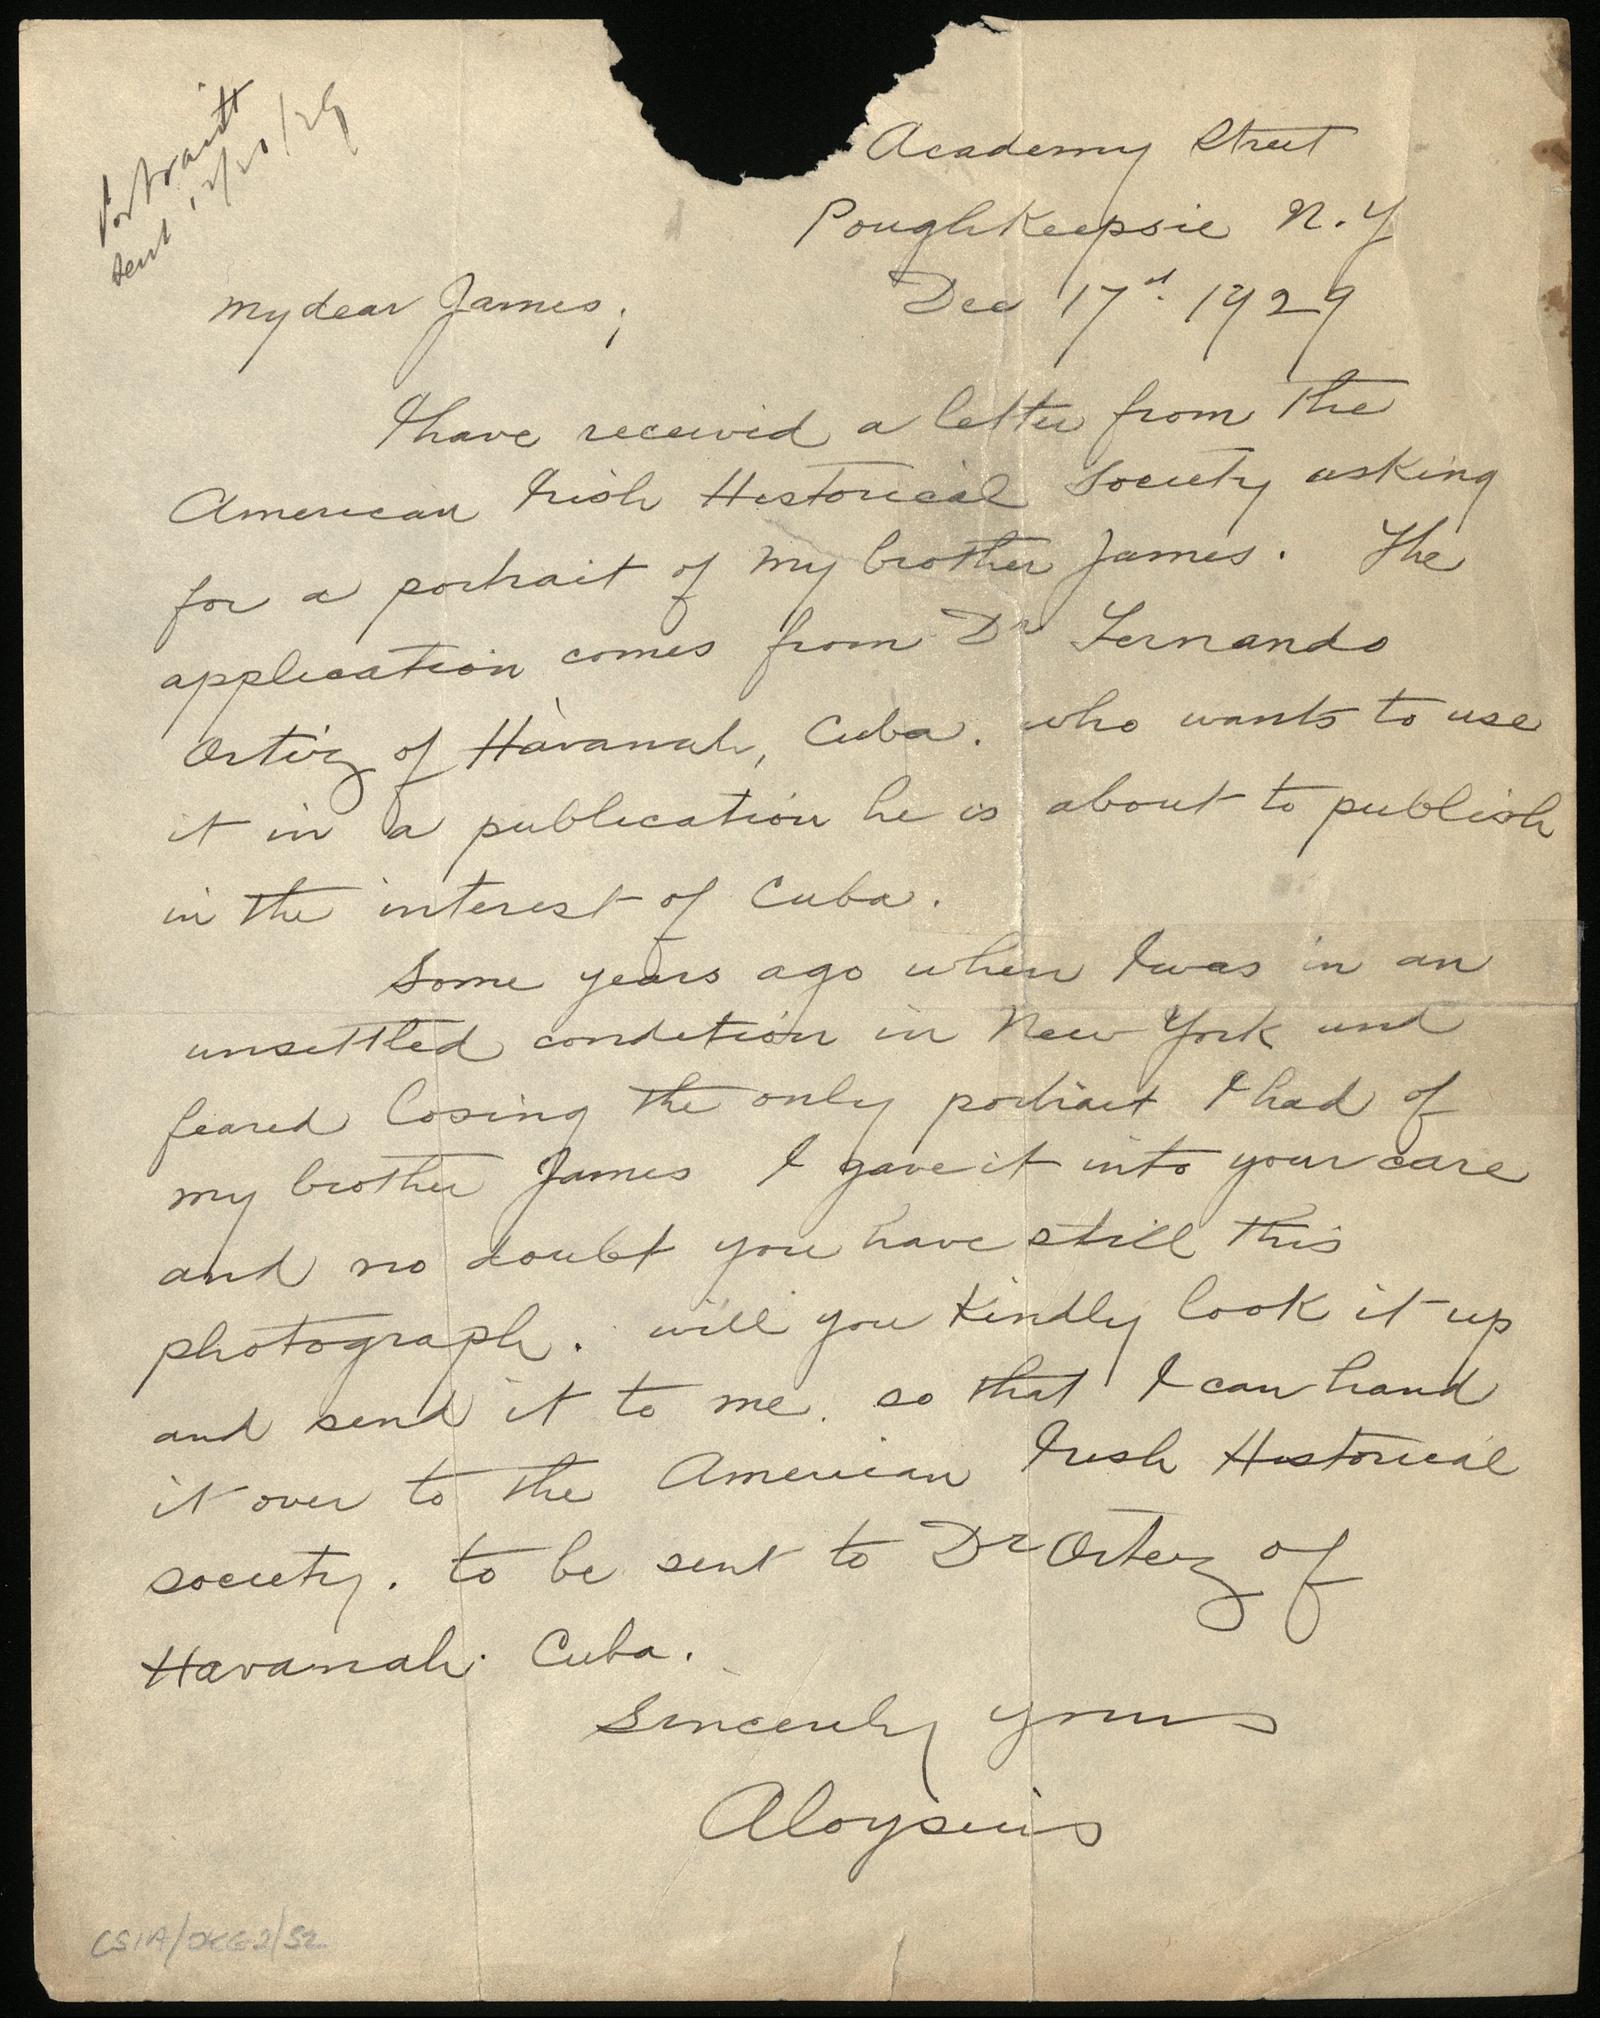 Portrait
sent 12/20/29
Academy Street
Poughkeepsie N.Y
Dec 17th. 1929
My dear James;
I have received a letter from the
American Irish Historical Society asking
for a portrait of my brother James. The
application comes from Dr Fernando
Ortiz of Havanah, Cuba. who wants to use
it in a publication he is about to publish
in the interest of Cuba.
Some years ago when I was in an
unsettled condition in New York and
feared losing the only portrait I had of
my brother James I gave it into your care
and no doubt you have still this
photograph. will you kindly look it up
and send it to me. so that I can hand
it over to the American Irish Historical
society. to be sent to Dr Ortiz of
Havanah. Cuba.
Sincerely yours
Aloysius
CSIA/OKE2/52